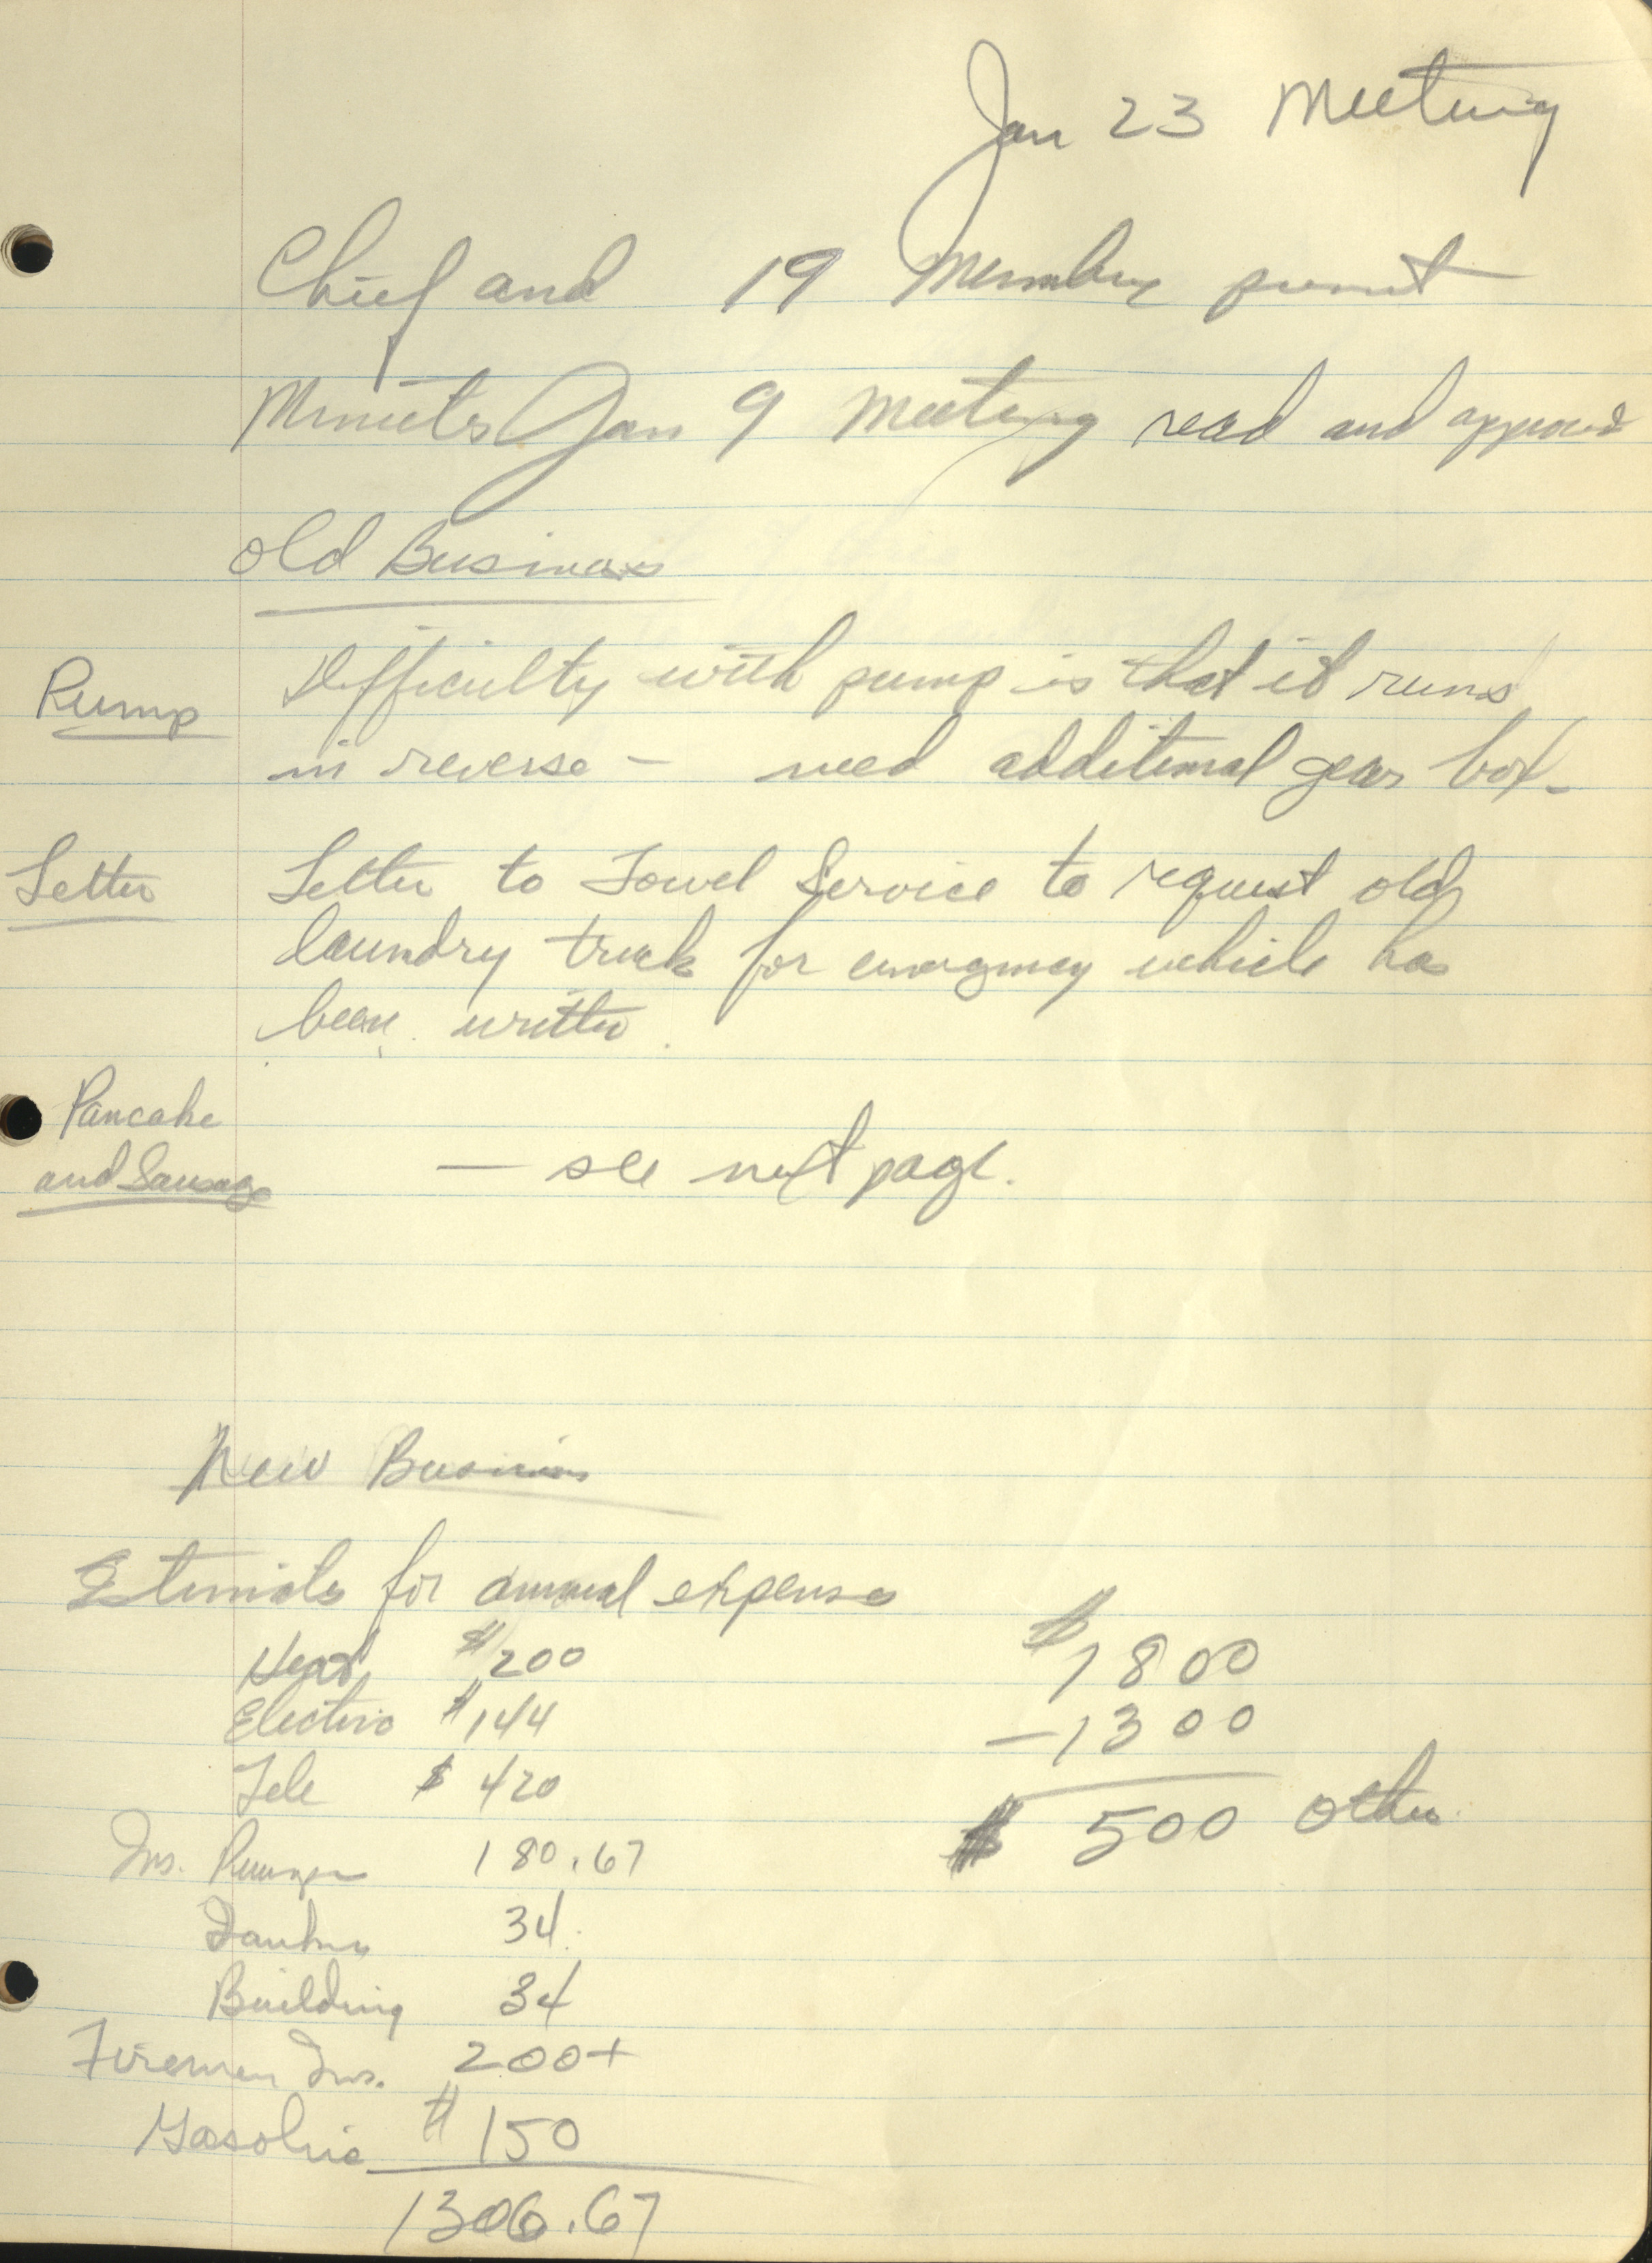 Jan 23 Meeting
Chief and 19 Members present
Minutes Jan 9 Meeting read and approved
Old Business
Pump Difficulty with pump is that it runs
in reverse - need additional gear box -
Letter Letter to Towel Service to request old
laundry truck for emergency vehicle has
been written.
Pancake
and Sausage — see next page.
New Business
Estimate for annual expenses
Heat $200 $1800
Electric $144 -1300
Tele $420 $500 other
Ins. Pumper 180.67
Tanker 34.
Building 34
Firemen Ins. 200+
Gasoline $150
1306.67